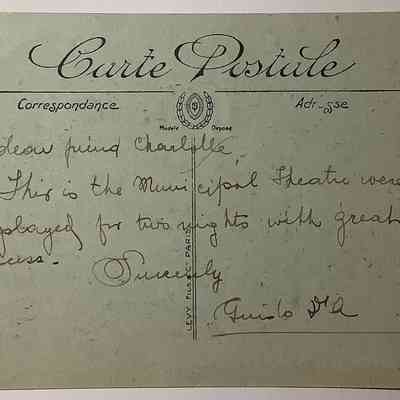 Carte Postale
Correspondance Adresse
Modèle Déposé
dear friend Charlotte,
This is the Municipal Theatre were
played for two nights with great
cess.
Sincerly
Guido D'A
LEVY FILS & Cie PARIS